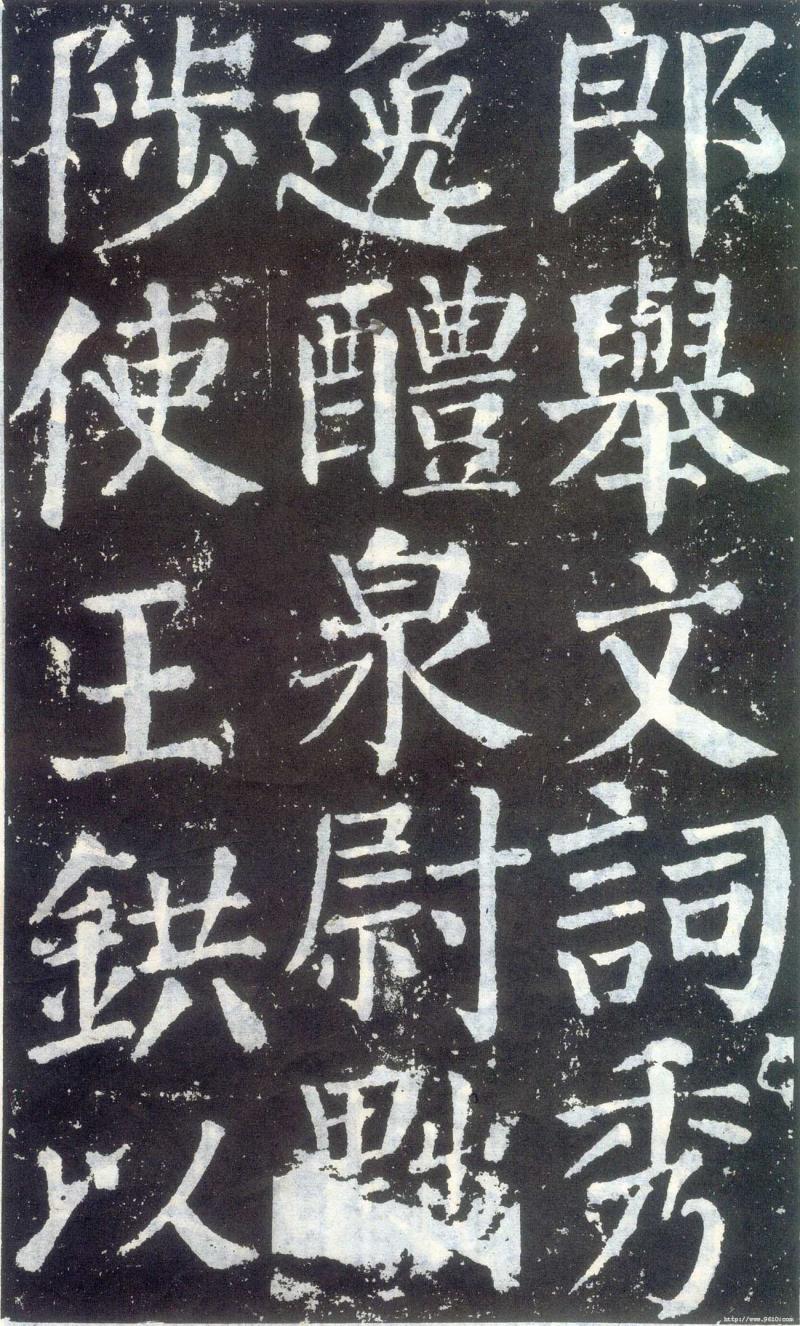 郎舉文詞秀
逸醴泉尉黜
陟使王鉷以
http://www.9610.com